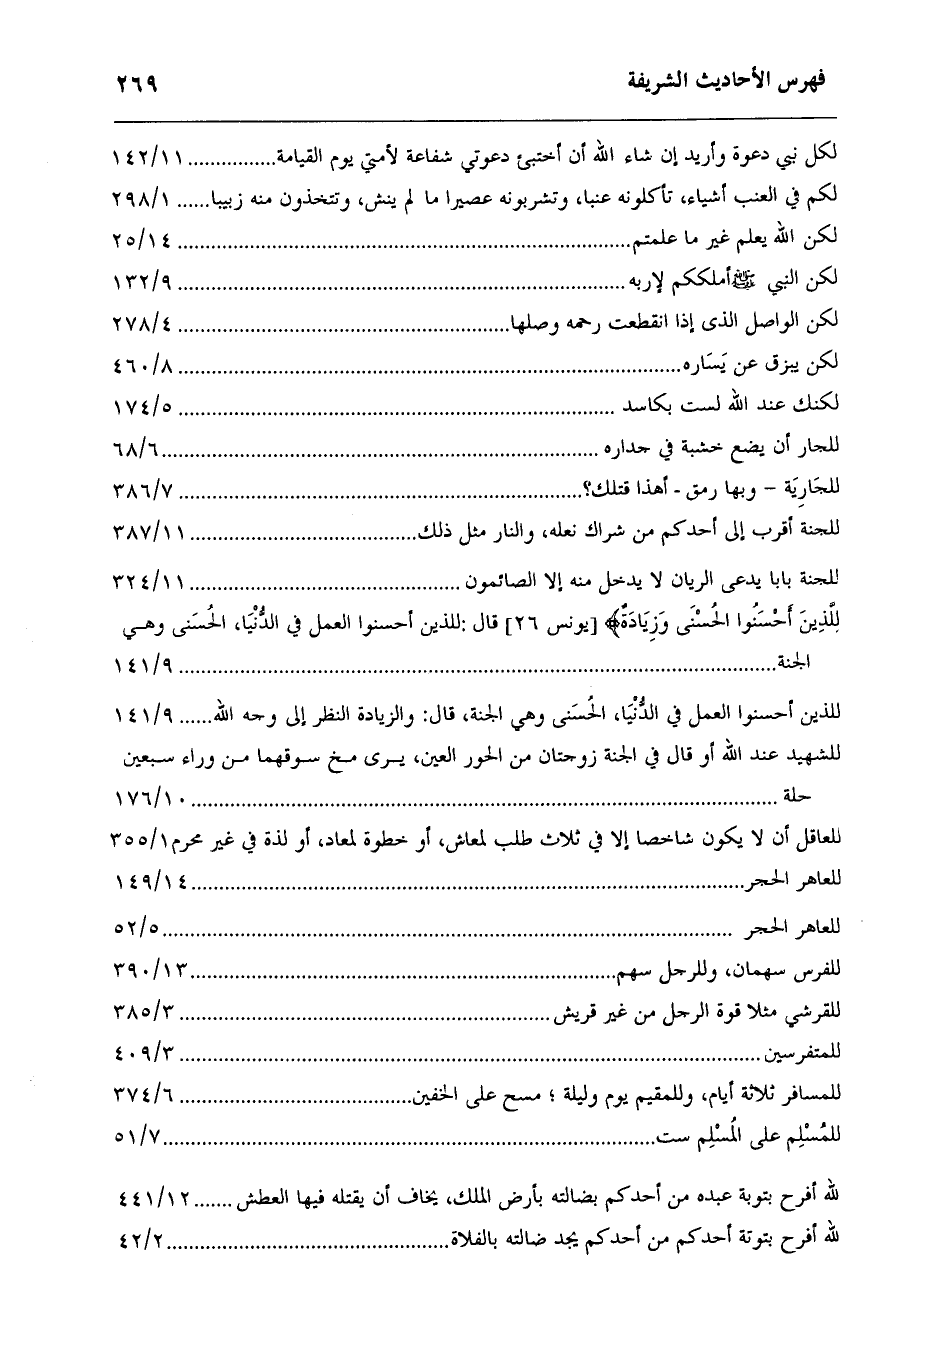 فهرس الأحاديث الشريفة ٢٦٩
لكل نبي دعوة وأريد إن شاء الله أن أختبئ دعوتي شفاعة لأمتي يوم القيامة................ ١٤٢/١١
لكم في العنب أشياء، تأكلونه عنبا، وتشربونه عصيرا ما لم ينش، وتتخذون منه زبيبا...... ٢٩٨/١
لكن الله يعلم غير ما علمتم................................ ٢٥/١٤
لكن النبي ﷺ أملككم لإربه................................ ١٣٢/٩
لكن الواصل الذى إذا انقطعت رحمه وصلها................................ ٢٧٨/٤
لكن يبزق عن يَسَاره................................ ٤٦٠/٨
لكنك عند الله لست بكاسد ................................ ١٧٤/٥
للجار أن يضع خشبة في جداره ................................ ٦٨/٦
للجَارِيَة – وبها رمق - أهذا قتلك؟................................ ٣٨٦/٧
للجنة أقرب إلى أحدكم من شراك نعله، والنار مثل ذلك................................ ٣٨٧/١١
للجنة بابا يدعى الريان لا يدخل منه إلا الصائمون ................................ ٣٢٤/١١
لِلَّذِينَ أَحْسَنُوا الحُسْنَى وَزِيَادَةٌ﴾ [يونس ٢٦] قال :للذين أحسنوا العمل في الدُّنْيَا، الحُسَنى وهـي
الجنة................................ ١٤١/٩
للذين أحسنوا العمل في الدُّنْيَا، الحُسَنى وهي الجنة، قال: والزيادة النظر إلى وجه الله...... ١٤١/٩
للشهيد عند الله أو قال في الجنة زوجتان من الحور العين، يـرى مـخ سـوقهما مـن وراء سـبعين
حلة ................................ ١٧٦/١٠
للعاقل أن لا يكون شاخصا إلا في ثلاث طلب لمعاش، أو خطوة لمعاد، أو لذة في غير محرم ٣٥٥/١
للعاهر الحجر................................ ١٤٩/١٤
للعاهر الحجر ................................ ٥٢/٥
للفرس سهمان، وللرجل سهم................................ ٣٩٠/١٣
للقرشي مثلا قوة الرجل من غير قريش ................................ ٣٨٥/٣
للمتفرسين................................ ٤٠٩/٣
للمسافر ثلاثة أيام، وللمقيم يوم وليلة ؛ مسح على الخفين................................ ٣٧٤/٦
للمُسْلِم على المُسْلِم ست................................ ٥١/٧
لله أفرح بتوبة عبده من أحدكم بضالته بأرض الملك، يخاف أن يقتله فيها العطش ....... ٤٤١/١٢
لله أفرح بتوتة أحدكم من أحدكم يجد ضالته بالفلاة................................ ٤٢/٢